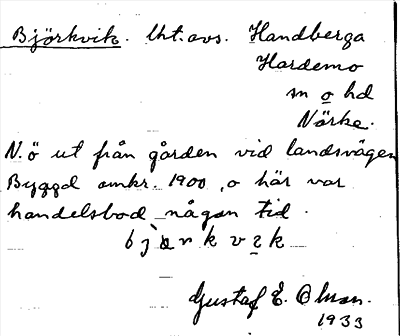 Björkvik. lht. avs. Handberga
Hardemo
sn o hd
Närke.
N.ö ut från gården vid landsvägen
Byggd omkr. 1900, o här var
handelsbod någon tid.
bjàrkvik
Gustaf E. Olsson.
1933